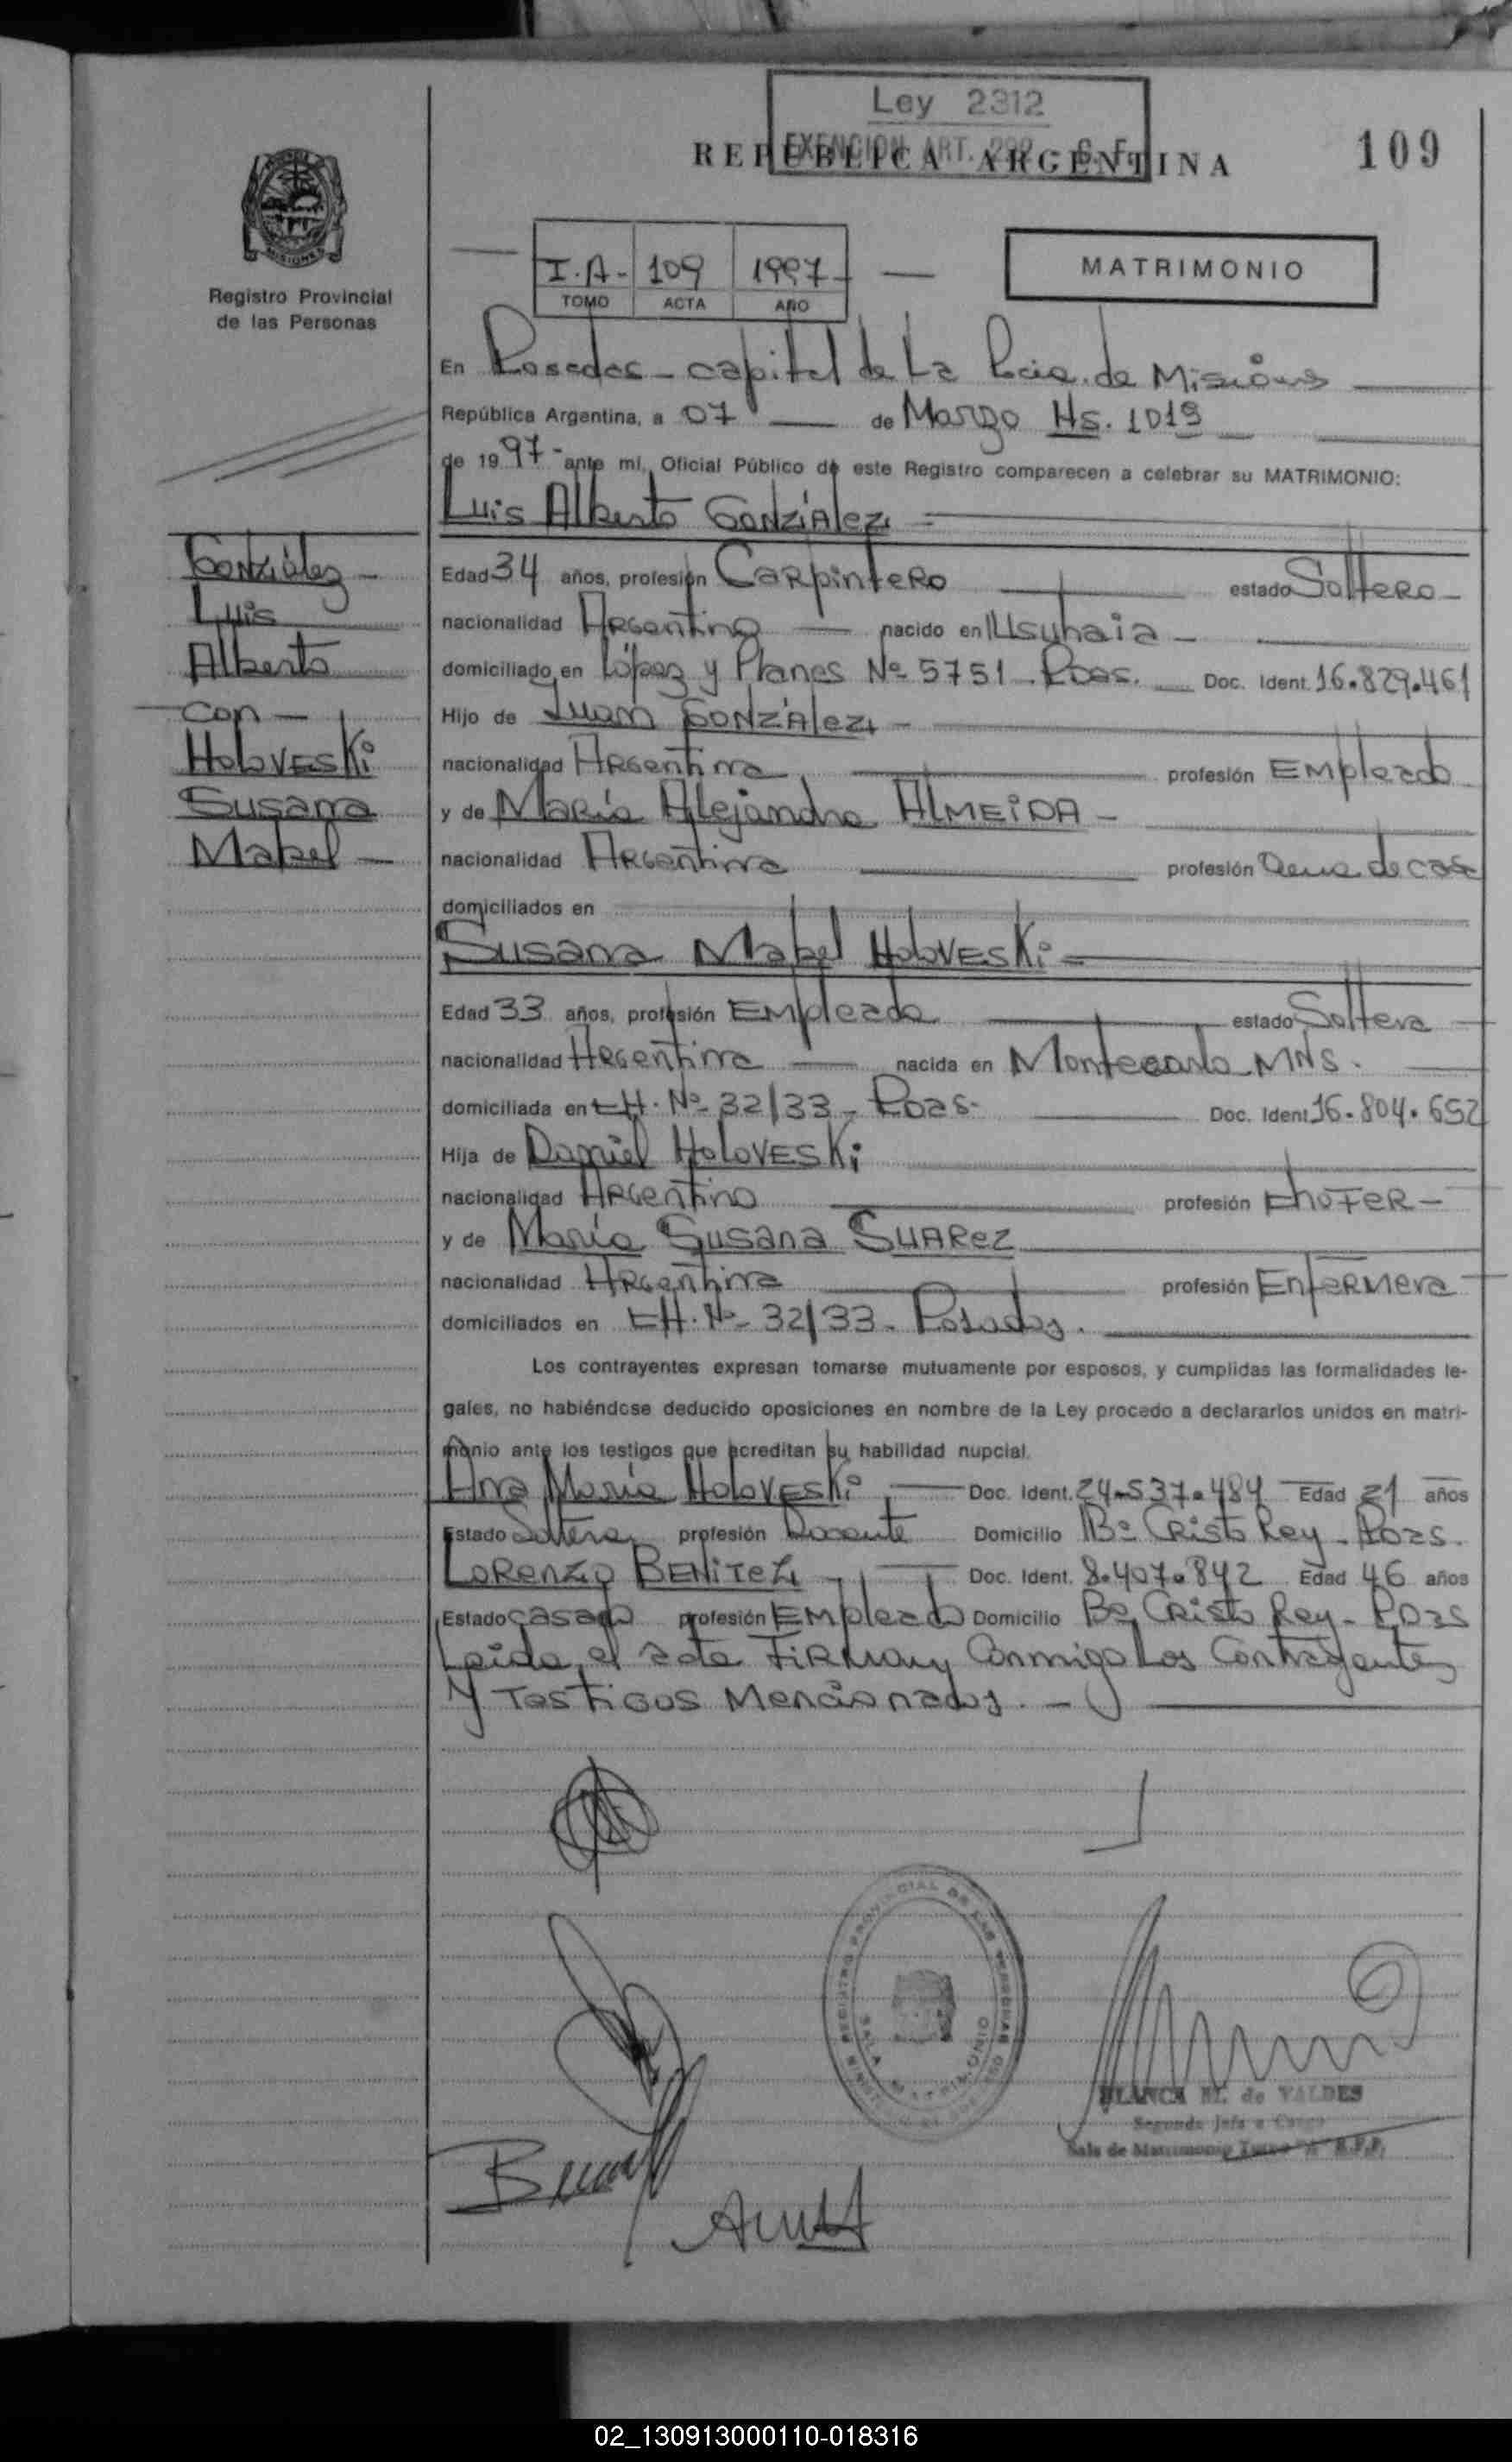 Ley 2312
EXENCION ART.
REPUBLICA ARGENTINA
109
MISIONES
Registro Provincial
de las Personas
I.A- 109 1997-
TOMO ACTA AÑO
MATRIMONIO
En Posadas - capital de La Pcia. de Misiones
República Argentina, a 07 de Marzo Hs. 1019
de 1997- ante mí, Oficial Público de este Registro comparecen a celebrar su MATRIMONIO:
Luis Alberto González
González -
Luis
Alberto
con -
Holoveski
Susana
Mabel -
Edad 34 años, profesión Carpintero estado Soltero -
nacionalidad Argentino nacido en Usuhaia -
domiciliado en López y Planes Nº 5751. Pdas. Doc. Ident. 16.829.461
Hijo de Juan González -
nacionalidad Argentina profesión Empleado
y de María Alejandra ALMEIDA -
nacionalidad Argentina profesión de casa
domiciliados en
Susana Mabel Holoveski
Edad 33 años, profesión Empleada estado Soltera
nacionalidad Argentina nacida en Montecarlo - MNS.
domiciliada en CH. Nº 32/33 - Pdas. Doc. Ident. 16.804.652
Hija de Daniel Holoveski
nacionalidad Argentino profesión Chofer -
y de María Susana Suarez
nacionalidad Argentina profesión Enfermera
domiciliados en CH. Nº 32/33 - Posadas.
Los contrayentes expresan tomarse mutuamente por esposos, y cumplidas las formalidades le-
gales, no habiéndose deducido oposiciones en nombre de la Ley procedo a declararlos unidos en matri-
monio ante los testigos que acreditan su habilidad nupcial.
Ana María Holoveski Doc. Ident. 24.537.484 Edad 21 años
Estado Soltera profesión Docente Domicilio Bº Cristo Rey - Pdas.
Lorenzo Benitez Doc. Ident. 8.407.842 Edad 46 años
Estado casado profesión Empleado Domicilio Bº Cristo Rey - Pdas
Leida el acta Firman Conmigo Los Contrayentes
y Testigos Mencionados. -
REGISTRO PROVINCIAL DE LAS PERSONAS
SALA MATRIMONIO
BLANCA M. de VALDES
Segunda Jefa a Cargo
Sala de Matrimonio Turno "A" R.P.P.
02_130913000110-018316